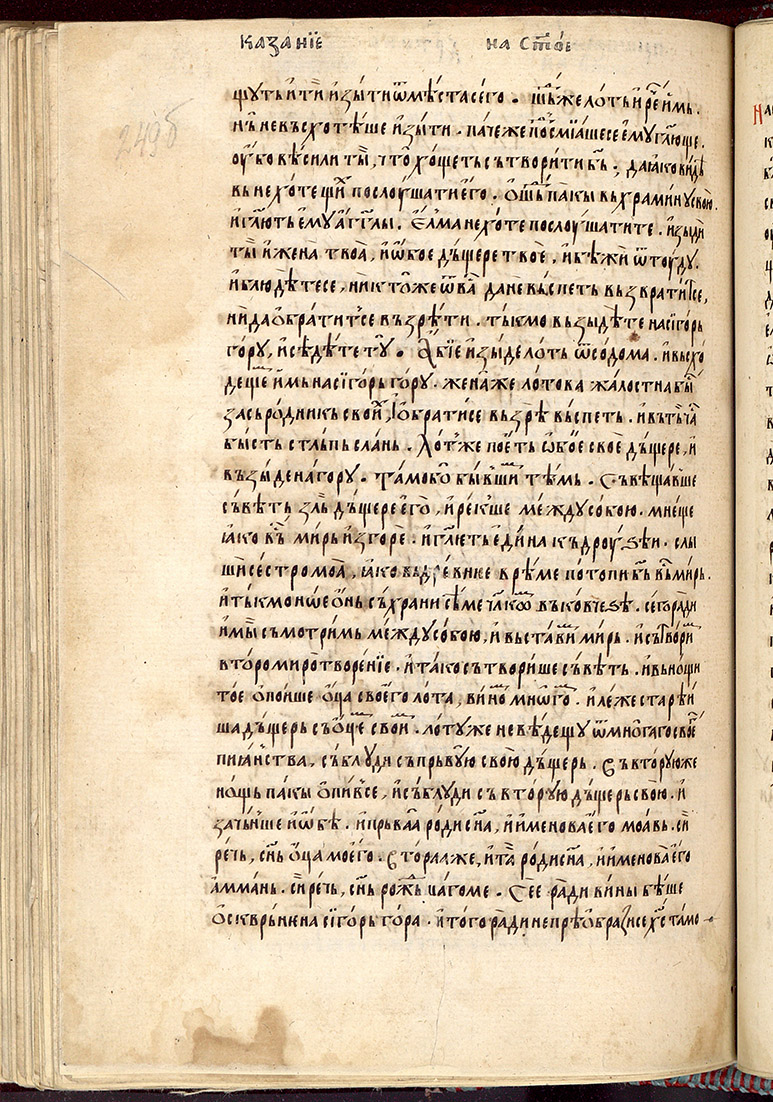 Казанїе на Ст҃ое
249б
щуть и ти изыти ѿ мѣста сего. шⷣьже лоть и реⷱ имь.
нь не въсхотѣше изыти. паче же посмїашесе ему гл҃юще.
оубо вѣси ли ты, что хощеть сътворити бь҃. да іако видѣ
вь не хотещиⷯ послоушати его. ѡшⷣь пакы вь храмину свою.
и гл҃ють ему агг҃лы. Елма не хоте послоушати те. изыди
ты и жена твоа, и ѡбое дъщере твое. и бѣжи ѿ тоуду.
и блюдѣтесе, никтоже ѿ ва да не въспеть възвратитсе,
ни да обратитсе възрѣти. тькмо възыдѣте на сїгорь
гору, и сѣдѣте ту. Абїе изыде лоть ѿ содома. и въсхо
деще имь на сїгорь гору. жена же лотова жалостна бы
за сьродникь своиⷯ, і обратисе възрѣ въспеть. и вь тъ ча
бысть стльпь слань. Лот же поеть ѡбое свое дъщере, и
възыде на гору. тамо бо бывшиⷨ тѣмь. Съвѣщавше
съвѣть злъ дъщере его, и рекше между собою. мнеще
іако въ мирь изгорѣ. и гл҃ють едина къ дроуѕѣи. слы
ши сестро моа, іако въ древнее врѣме потопи бь҃ въ мирь.
и тькмо ноѡе онь съхрани сѣме чл҃кѡⷨ въ ковчеѕѣ. сего ради
и мы съмотримь между собою, и въставиⷨ мирь. и сьтвориⷨ
второ миротворенїе. и тако сътворише съвѣть. и вь нощи
тое опоише оца своего лота, виноⷨ мнѡгоⷨ. и леже старѣи
ша дъщерь съ оцеⷨ своиⷨ. лоту же не вѣдещу ѿ многаго своеⷢ
пиіанства, съблуди съ прьвую свою дъщерь. Въ вторую же
нощь пакы опивсе, и съблуди съ вторую дъщерь свою. и
зачьнше и ѡбѣ. и прьваа роди сн҃а, и именова его моавь. си
речь, сн҃ь оца моего. Вторала же, и та роди сн҃а, и именова его
амман. си речь, сн҃ь рожⷣь цагоме. Сее ради вины бѣше
оскврьнена сїгорь гора. и того ради не прѣобразисе хс҃ тамо